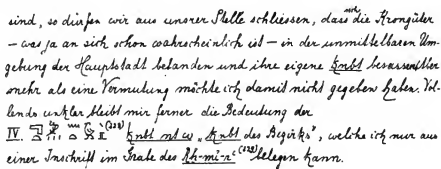 sind, so dürfen wir aus unsrer Stelle schliessen, dass sich die Krongüter
– was ja an sich schon wahrscheinlich ist – in der unmittelbaren Um-
gebung der Hauptstadt befanden und ihre eigene ḳnbt besassen. Aber
mehr als eine Vermutung möchte ich damit nicht gegeben haben. Vol-
lends unklar bleibt mir ferner die Bedeutung der
IV. (228) ḳnbt nt w „ḳnbt des Bezirks", welche ich nur aus
einer Inschrift im Grabe des Rḫ-mı͗-rʿ (229) belegen kann.